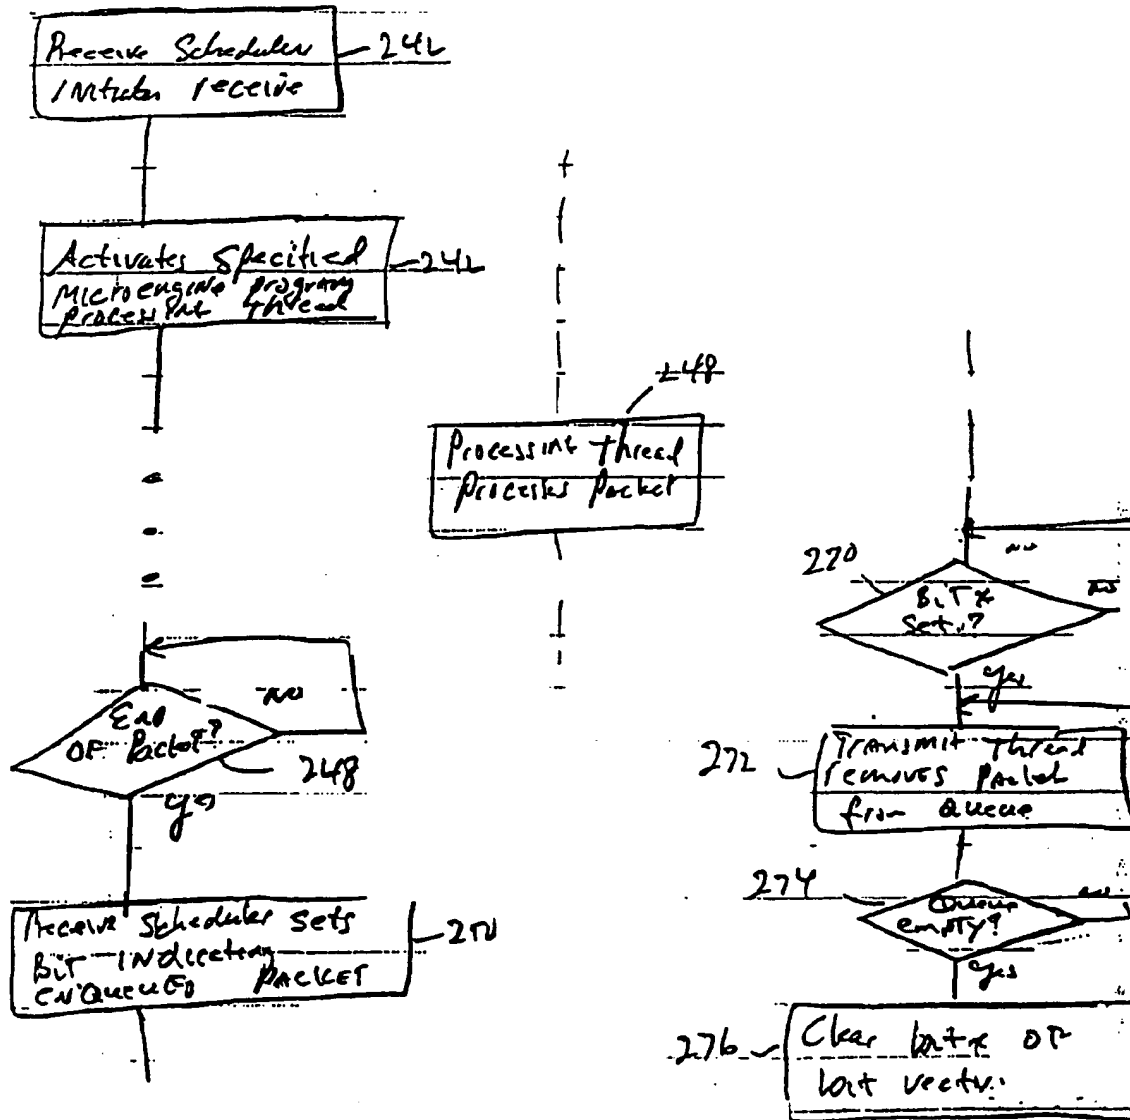 Receive Scheduler
initiates receive
242
Activates Specified
Microengine program
processing thread
242
248
Processing thread
Processes packet
End
OF Packet?
NO
248
yes
Receive Scheduler sets
Bit indicating
ENQUEUED PACKET
250
270
NO
Bit x
Set?
NO
yes
272
Transmit thread
removes packet
from Queue
274
Queue
empty?
NO
yes
276
Clear bit x OF
bit vector